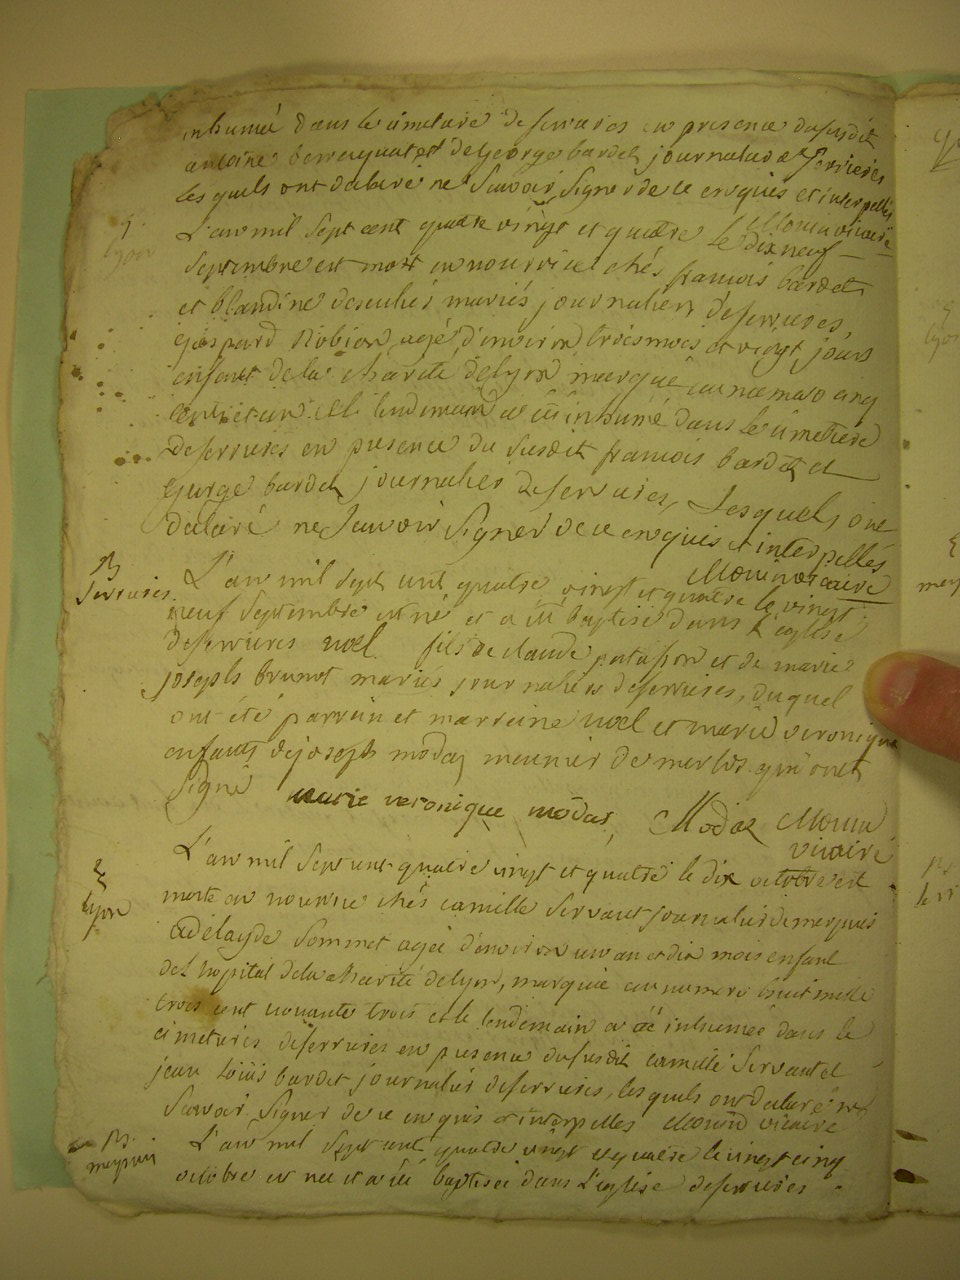 inhumée dans le cimetiere de serrieres en presence du susdit
antoine berruyat et de george bardet journalier de serrieres
les quels ont déclaré ne savoir signer de ce enquis et interpellés
Mouin vicaire
Lyon
L'an mil sept cent quatre vingt et quatre le dix neuf
septembre est mort en nourrice chés francois bardet
et blandine mariés journaliers de serrieres,
gaspard Robion, agé d'environ trois mois et vingt jours
enfant de la charité de lyon marqué au numero cinq
cent et un et le lendemain a été inhumé dans le cimetiere
de serrieres en presence du susdit francois bardet et
george bardet journalier de serrieres, lesquels ont
déclaré ne savoir signer de ce enquis et interpellés
Mouin vicaire
B
serrieres
L'an mil sept cent quatre vingt et quatre le vingt
neuf septembre est né et a été baptisé dans l'eglise
de serrieres noel fils de claude patasson et de marie
joseph brunot mariés journaliers de serrieres, duquel
ont été parrain et marreine noel et marie veronique
enfants de joseph modaz meunier de merlos qui ont
signé marie veronique modas Modaz Mouin
vicaire
Lyon
L'an mil sept cent quatre vingt et quatre le dix octobre est
morte en nourrice chés camille servant journalier de marquis
adelayde sommet agée d'environ un an et dix mois enfant
de l'hopital de la charité de lyon, marquée au numero huit mille
trois cent nonante trois et le lendemain a été inhumée dans le
cimetiere de serrieres en presence du susdit camille servant et
jean louis bardet journalier de serrieres, les quels ont déclaré ne
savoir signer de ce enquis et interpellés Mouin vicaire
B
meyrieu
L'an mil sept cent quatre vingt et quatre le vingt cinq
octobre est née et a été baptisée dans l'eglise de serrieres